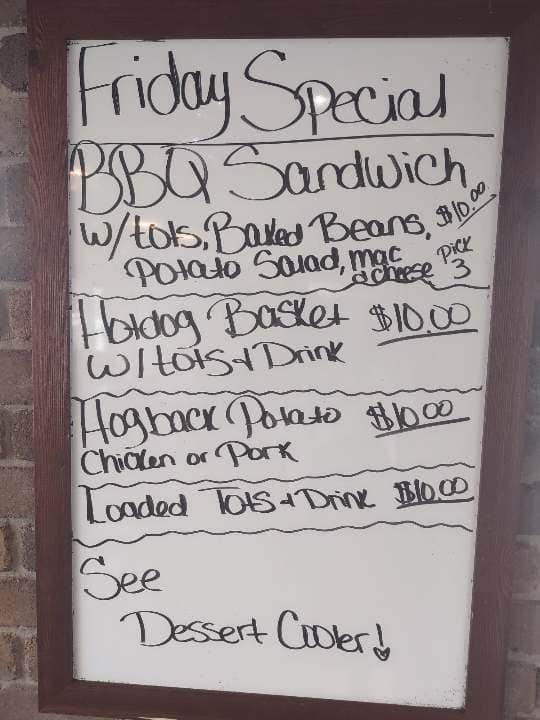 Friday Special
BBQ Sandwich
w/tots, Baked Beans, $10.00
Potato Salad, mac & cheese Pick 3
Hotdog Basket $10.00
w/tots + Drink
Hogback Potato $10.00
Chicken or Pork
Loaded Tots + Drink $10.00
See
Dessert Cooler!